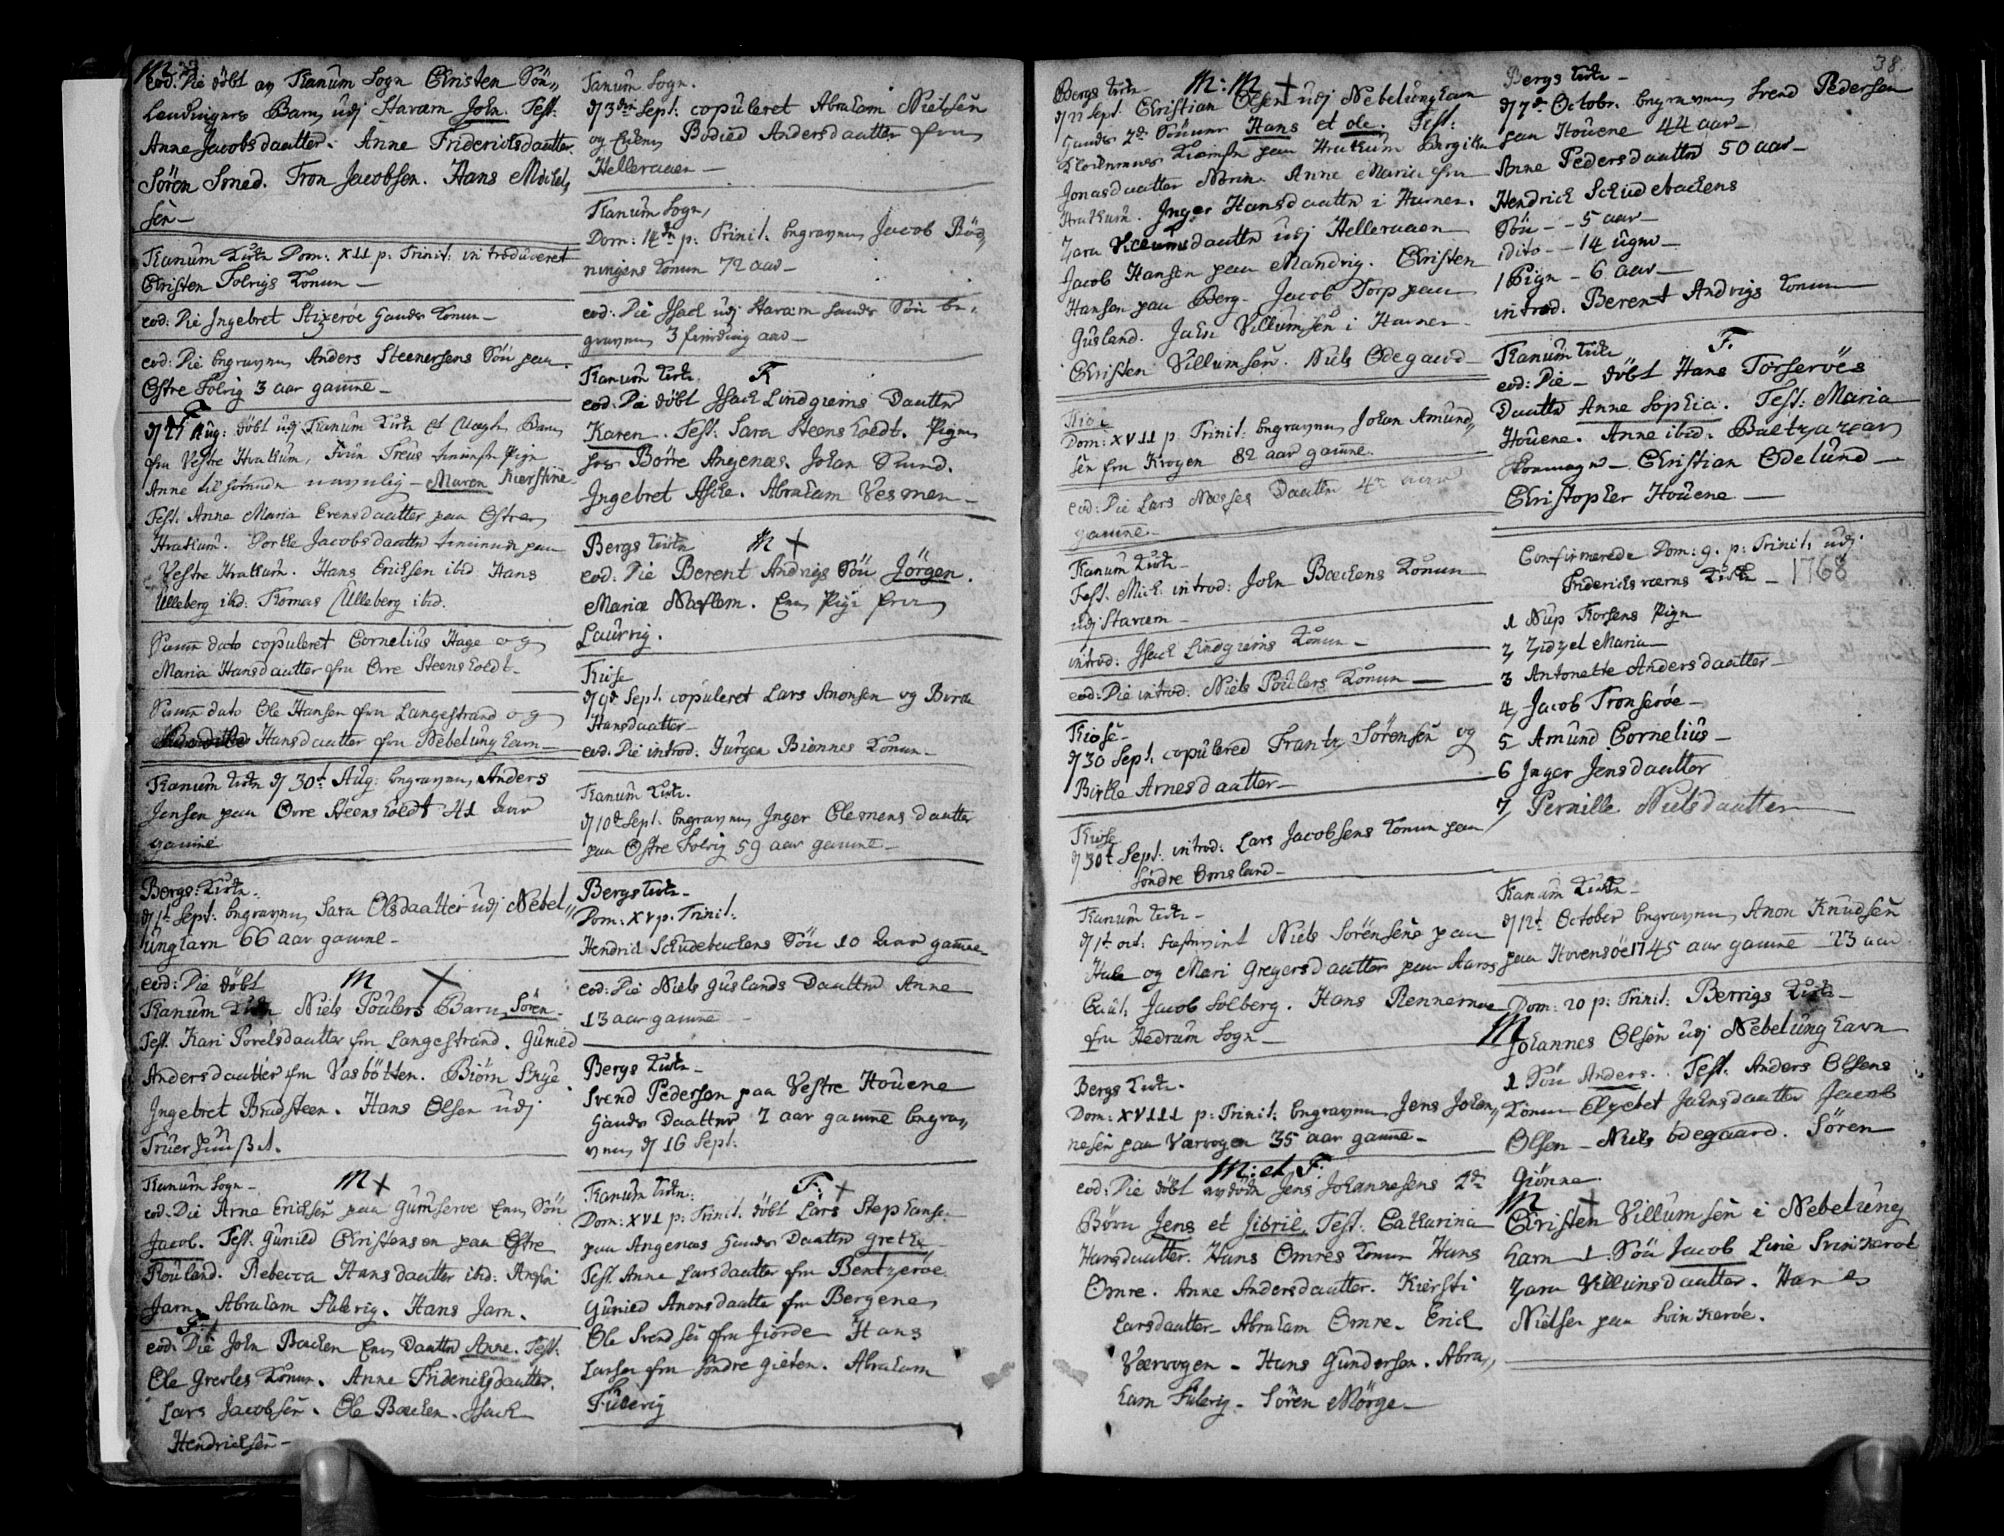 M
eod: Die döbt ay Tanum Sogn Christen Sön„
Lendingers Barn udj Havaen John. Test:
Anne Jacobsdaatter. Anne Friderichsdaatter.
Sören Smed. Tron Jacobsen. Hans Michel„
sen—
Tanum Kirke Dom: XII p: Trinit: introduceret
Christen Folvigs Konne—
eod: Die Ingebret Stixeröe hands Konne—
eod: Die begraven Anders Steenersens Sön paa
Östre Folvig 3 aar gamle—
F
d 27 Aug: döbt udj Tanum Kirke et Uægte Barn
fra Vestre Hvatum,
Anne navnlig— Maren Kierstine
Test: Anne Maria Evensdaatter paa Östre
Hvatum. Dorthe Jacobsdaatter paa
Vestre Hvatum. Hans Erichsen ibid Hans
Ulleberg ibd: Thomas Ulleberg ibd.
Samme dato copuleret Cornelius Hage og
Maria Hansdaatter fra Övre Steensholdt.
Samme dato Ole Hansen fra Langestrand og
Hansdaatter fra Nebelunghavn—
Tanum Kirke d 30t Aug: begraven Anders
Jensen paa Övre Steensholdt 41 Aar
gamle
Bergs: Kirke.
d 1t Sept: begraven Sara Olsdaatter udj Nebel„
unghavn 66 aar gamle—
eod: Die döbt M +
Tanum Kirke Niels Poulers Barn Sören—
Test: Kari Povelsdaatter fra Langestrand. Gunild
Andersdaatter fra Vasbötten. Biörn Skye.
Ingebret Brudsteen. Hans Olsen udj
Truer
Tanum Sogn— M +
eod: Die Arne Erichsen paa Gumserve Een Sön
Jacob. Test: Gunild Christensen paa Östre
Rouland. Rebecca Hansdaatter ibd: Ansen
Jarn. Abraham Fulerig. Hans Jarn.
F: +
eod: Die John Backen Een Daatter Anne. Test:
Ole Grevles Konne. Anne Friderichsdaatter.
Lars Jacobsen. Ole Bæcken. Isach
Hendrichsen—
Tanum Sogn.
d 3die Sept: copuleret Abraham Nielsen
og Enken Bodild Andersdaatter fra
Helleraaen—
Tanum Sogn,
Dom: 14de p: Trinit: begraven Jacob Böd„
ningens Konne 72 aar—
eod: Die Isach udj Havaen hands Sön be„
graven 3 fierding aar—
Tanum Kirke. F
eod: Die döbt Isach Lindgreens Daatter
Karen. Test: Sara Steensholdt. Pigen
hos Börre Angenæs. Johan Smed.
Ingebret Aske. Abraham Vesmen—
Bergs Kirke M +
eod: Die Berent Andvigs Sön Jörgen.
Maria Næslem. Een Pige fra
Laurvig.
Kiose
d 9d Sept: copuleret Lars Anonsen og Birte
Hansdaatter—
eod: Die introd: Jurgen Biönnes Konne—
Tanum Kirke.
d 10d Sept: begraven Inger Clemens daatter
paa Östre Folvig 59 aar gamle—
Bergs Kirke—
Dom: XV p: Trinit:
Hendrich Schudebackens Sön 10 Aar gamle—
eod: Die Niels Guslands Daatter Anne
13 aar gamle—
Bergs Kirke—
Svend Pedersen paa Vestre Houene
hands Daatter 7 aar gamle begra„
ven d 16 Sept:
Tanum Kirke: F: +
Dom: XVI p: Trinit: döbt Lars Stephans:
paa Angenæs hands Daatter Grethe
Test: Anne Larsdaatter fra Bentzeröe.
Gunild Anonsdaatter fra Bergene
Ole Svendsen fra Jiorde Hans
Larsen fra Söndre Gieten. Abraham
Fulerig
38.
Bergs Kirke M: M +
d 22 Sept: Christian Olsen udj Nebelunghavn
hands 2de Sönner Hans et Ole. Test:
paa Hvatum Bergithe
Jonasdaatter Anne Maria fra
Hvatum. Inger Hansdaatter i Havnen.
Zara Villumsdaatter udj Helleraaen
Jacob Hansen paa Mandvig. Christen
Hansen paa Berg. Jacob Torp paa
Gusland. John Villumsen i Havnen
Christen Villumsen. Niels Ödegaard—
Kiose
Dom: XVII p: Trinit: begraven Johan Amund„
sen fra Krogen 82 aar gamle.
eod: Die Lars Næsses Daatter 4re Aar
gamle.
Tanum Kirke—
Fest: Mich: introd: John Bæckens Konne
udj Havaen—
introd: Isach Lindgreens Konne—
eod: Die introd: Niels Poulers Konne—
Kiose—
d 30 Sept: copulered Frantz Sörensen og
Birthe Arnesdaatter—
Kiose
d 30t Sept: introd: Lars Jacobsens Konne paa
Söndre Omsland—
Tanum Kirke—
d 1t oct: Niels Sörensens paa
Hale og Mari Gregersdaatter paa Aaros
Caut: Jacob Solberg. Hans Rennernæ
fra Hedrum Sogn—
Bergs Kirke.
Dom: XVIII p: Trinit: begraven Jens Johan„
nesen paa Værvogen 35 aar gamle—
M: et F:
eod: Die döbt Jens Johannesens 2de
Börn Jens et Sibrie. Test: Catharina
Hansdaatter. Hans Omres Konne Hans
Omre. Anne Andersdaatter. Kiersti
Larsdaatter— Abraham Omre. Erich
Værvogen— Hans Gundersen. Abra„
ham Fulerig— Sören Mörge—
Bergs Kirke—
d 7de Octobr. begraven Svend Pedersen
paa Houene 44 aar—
Anne Pedersdaatter 50 aar—
Hendrich Schudebackens
Sön— 5 aar—
idito— 14 uger—
1 Pige— 6 aar—
introd: Berent Andvigs Konne
Tanum Kirke F.
eod: Die— döbt Hans Torseröes
Daatter Anne Sophia. Test: Maria
Houene. Anne ibid: Baltzar
Christian Ödelund—
Christopher Houene—
Confirmerede Dom: 9. p: Trinit: udj
Friderichsværns Kirke— 1768
1 Nup Thorsens Pige
2 Zidzel Maria—
3 Antonette Andersdaatter—
4 Jacob Tronseröe—
5 Amund Cornelius—
6 Inger Jensdaatter
7 Pernille Nielsdaatter
Tanum Kirke—
d 12t October begraven Anon Knudsen
paa Hovensöe 1745 aar gamle 23 aar
Dom: 20 p: Trinit: Berrigs Kirke—
M
Johannes Olsen udj Nebelunghavn
1 Sön Anders. Test: Anders Olsens
Konne Elyebet Johnsdaatter Jacob
Olsen— Niels ödegaard. Sören
Giönne.
M +
Christen Villumsen i Nebelung
havn 1 Sön Jacob Linie Svinkeröe
Zara Villumsdaatter. Hans
Nielsen paa Svinkeröe.